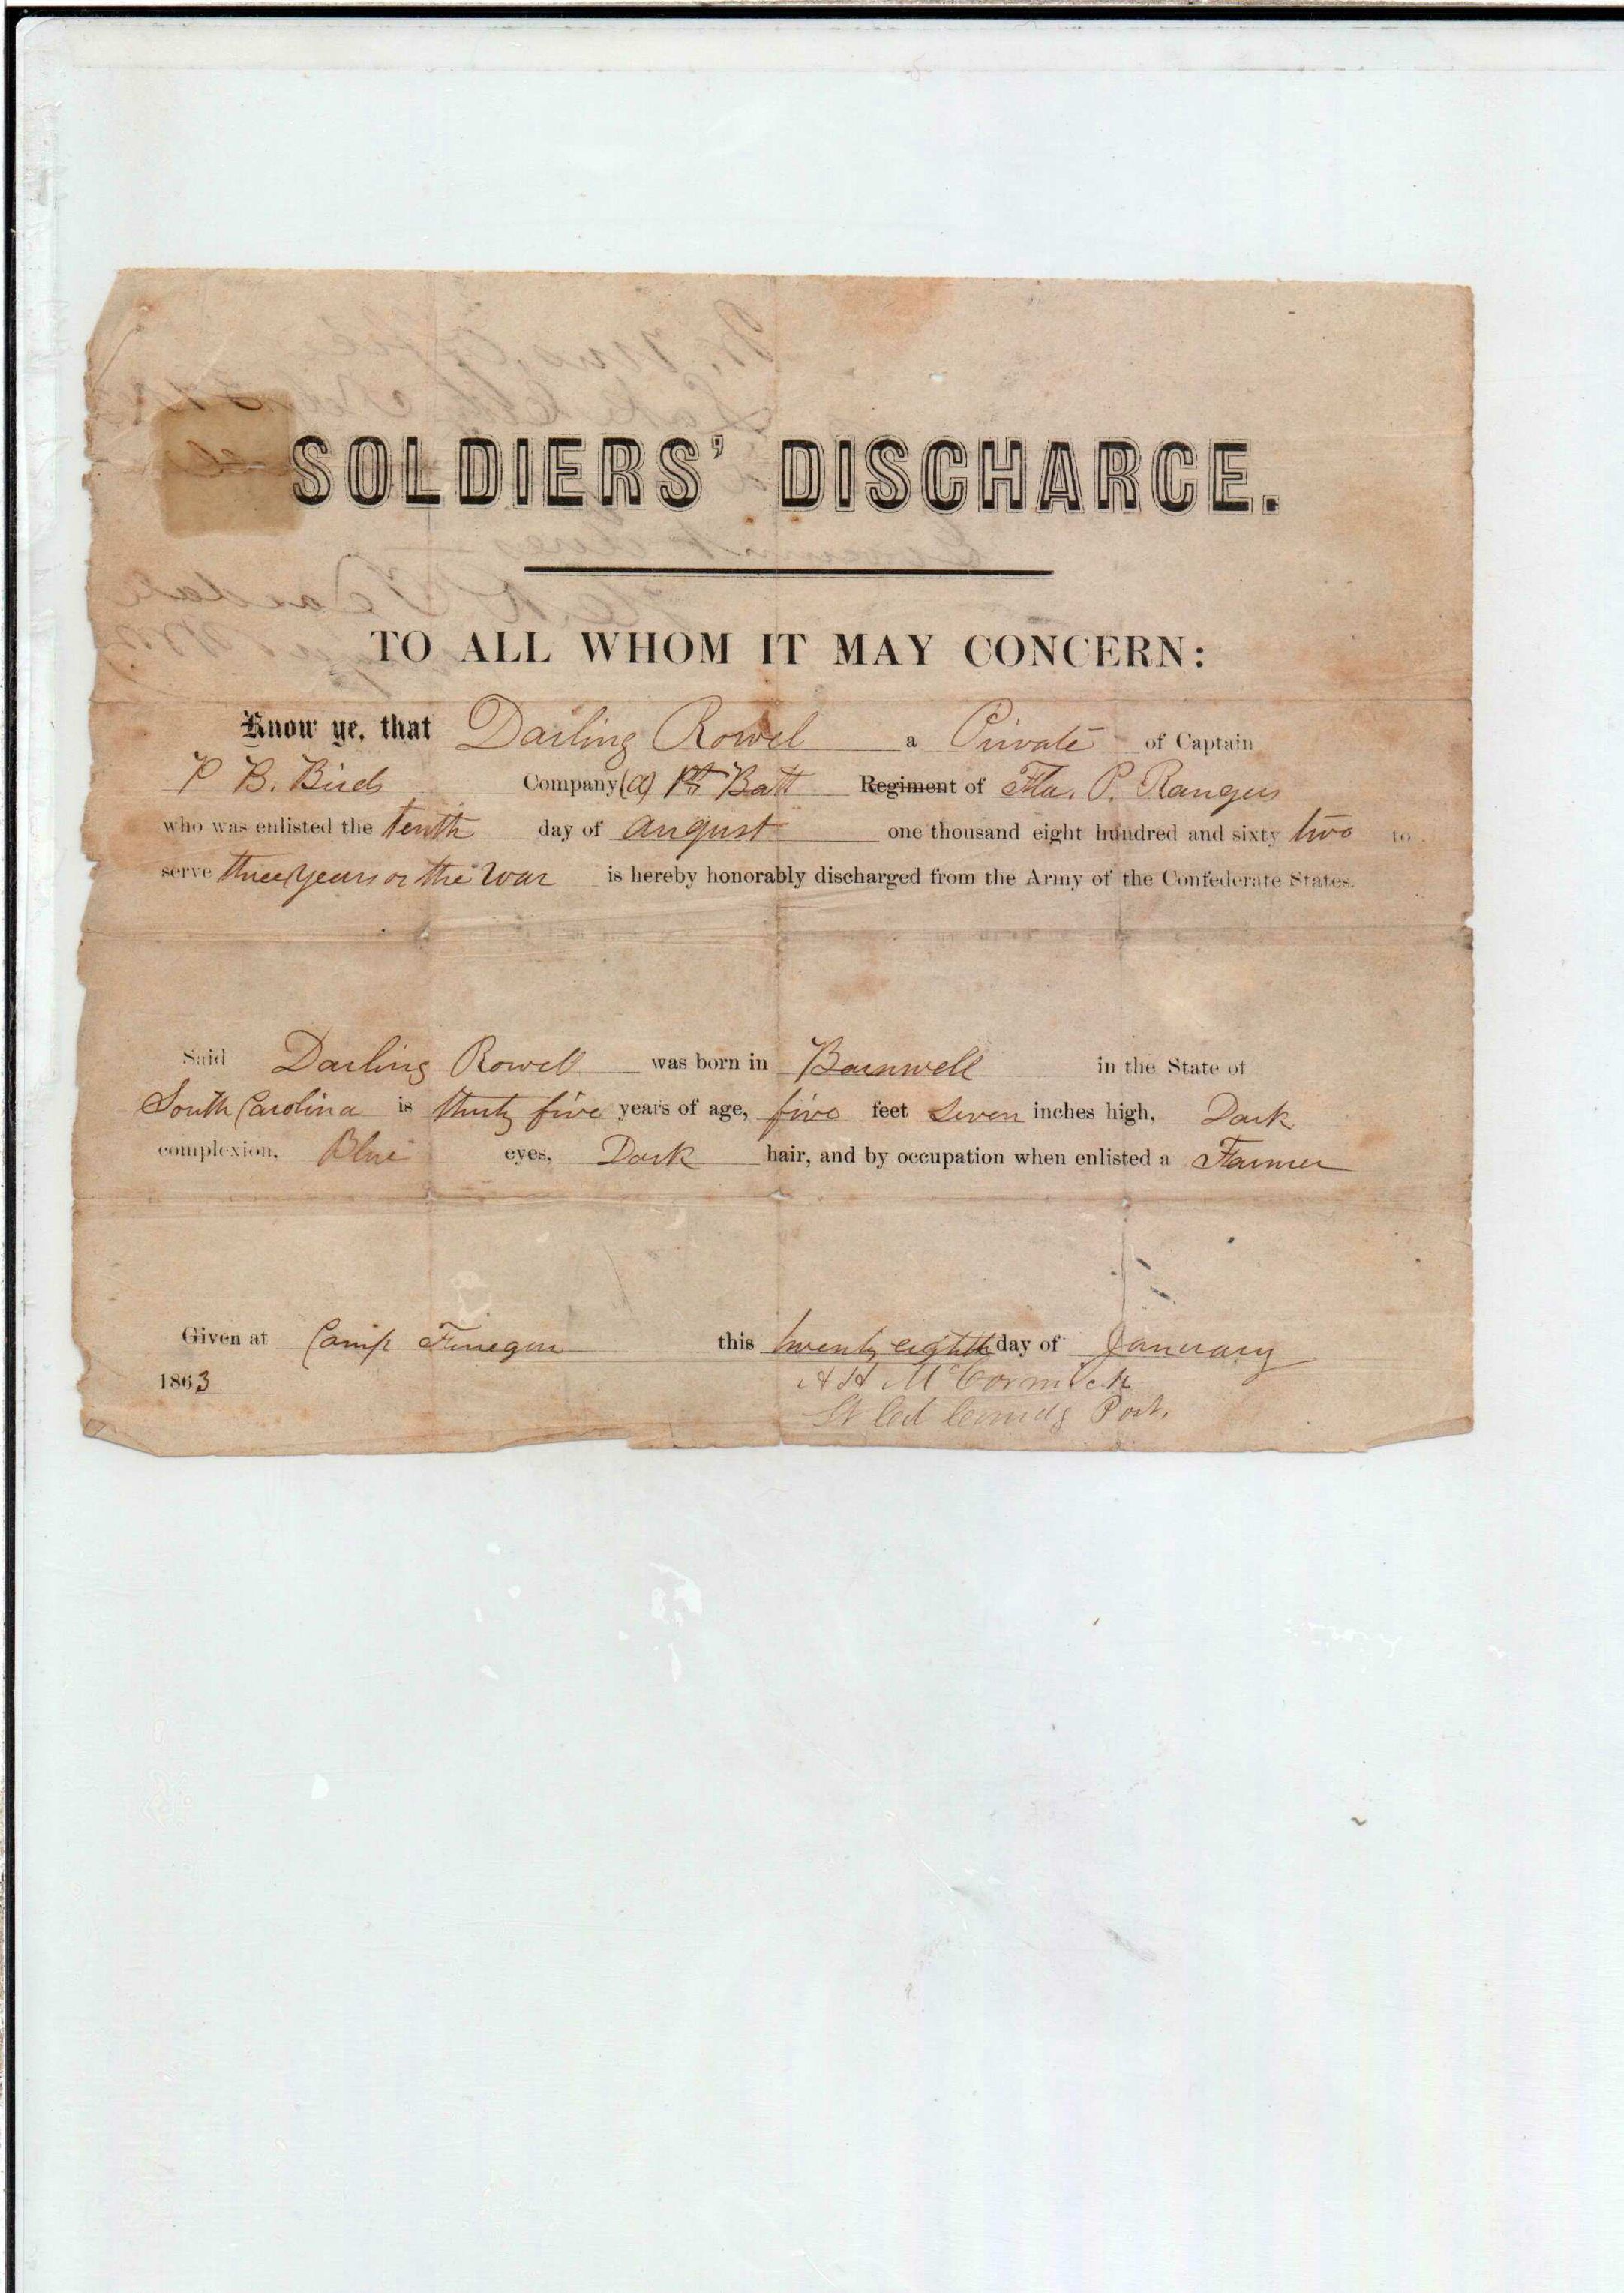 SOLDIERS' DISCHARGE.
TO ALL WHOM IT MAY CONCERN:
Know ye, that Darling Rowel a Private of Captain
P B. Birds Company (a) 1st Batt Regiment of Fla. P. Rangers
who was enlisted the tenth day of august one thousand eight hundred and sixty two to
serve three years or the War is hereby honorably discharged from the Army of the Confederate States.
Said Darling Rowell was born in Barnwell in the State of
South Carolina is thirty five years of age, five feet seven inches high, Dark
complexion, Blue eyes, Dark hair, and by occupation when enlisted a Farmer
Given at Camp Finegan this twenty eighth day of January
1863
A H McCormick
Lt Col Comdg Post.